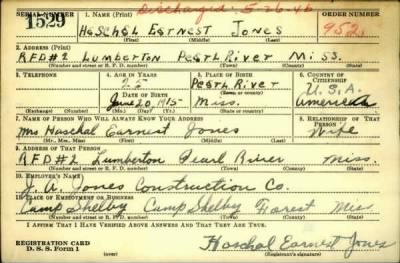 Discharged 5-26-46
SERIAL NUMBER 1. NAME (Print) ORDER NUMBER
1529 Heschel Earnest Jones 952
(First) (Middle) (Last)
2. ADDRESS (Print)
RFD#2 Lumberton Pearl River Miss.
(Number and street or R. F. D. number) (Town) (County) (State)
3. TELEPHONE 4. AGE IN YEARS 5. PLACE OF BIRTH 6. COUNTRY OF CITIZENSHIP
25 Pearl River U.S.A.
DATE OF BIRTH (Town or county)
June 20, 1915 Miss. American
(Exchange) (Number) (Mo.) (Day) (Yr.) (State or country)
7. NAME OF PERSON WHO WILL ALWAYS KNOW YOUR ADDRESS 8. RELATIONSHIP OF THAT PERSON
Mrs Haschal Earnest Jones Wife
(Mr., Mrs., Miss) (First) (Middle) (Last)
9. ADDRESS OF THAT PERSON
RFD#2 Lumberton Pearl River Miss.
(Number and street or R. F. D. number) (Town) (County) (State)
10. EMPLOYER'S NAME
J. A. Jones Construction Co.
11. PLACE OF EMPLOYMENT OR BUSINESS
Camp Shelby Camp Shelby Forest Miss
(Number and street or R. F. D. number) (Town) (County) (State)
I AFFIRM THAT I HAVE VERIFIED ABOVE ANSWERS AND THAT THEY ARE TRUE.
REGISTRATION CARD
D. S. S. Form 1 Haschal Earnest Jones
(over) (Registrant's signature)